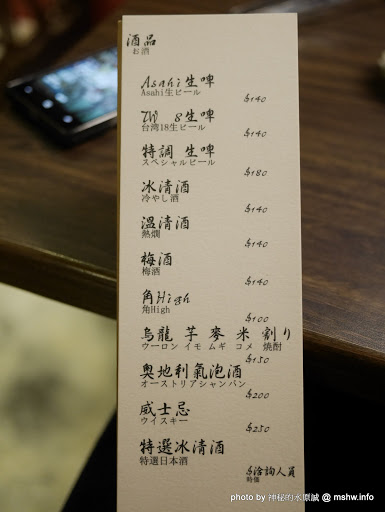 酒品
お酒
Asahi 生啤
Asahi生ビール
$140
TW 8生啤
台湾18生ビール
$140
特調 生啤
スペシャルビール
$180
冰清酒
冷やし酒
$140
溫清酒
熱燗
$140
梅酒
梅酒
$140
角High
角High
$100
烏龍 芋 麥 米 割り
ウーロン イモ ムギ コメ 焼酎
$150
奧地利氣泡酒
オーストリアシャンパン
$200
威士忌
ウイスキー
$250
特選冰清酒
特選日本酒
$洽詢人員
時価
photo by 神秘的水原誠 @ mshw.info